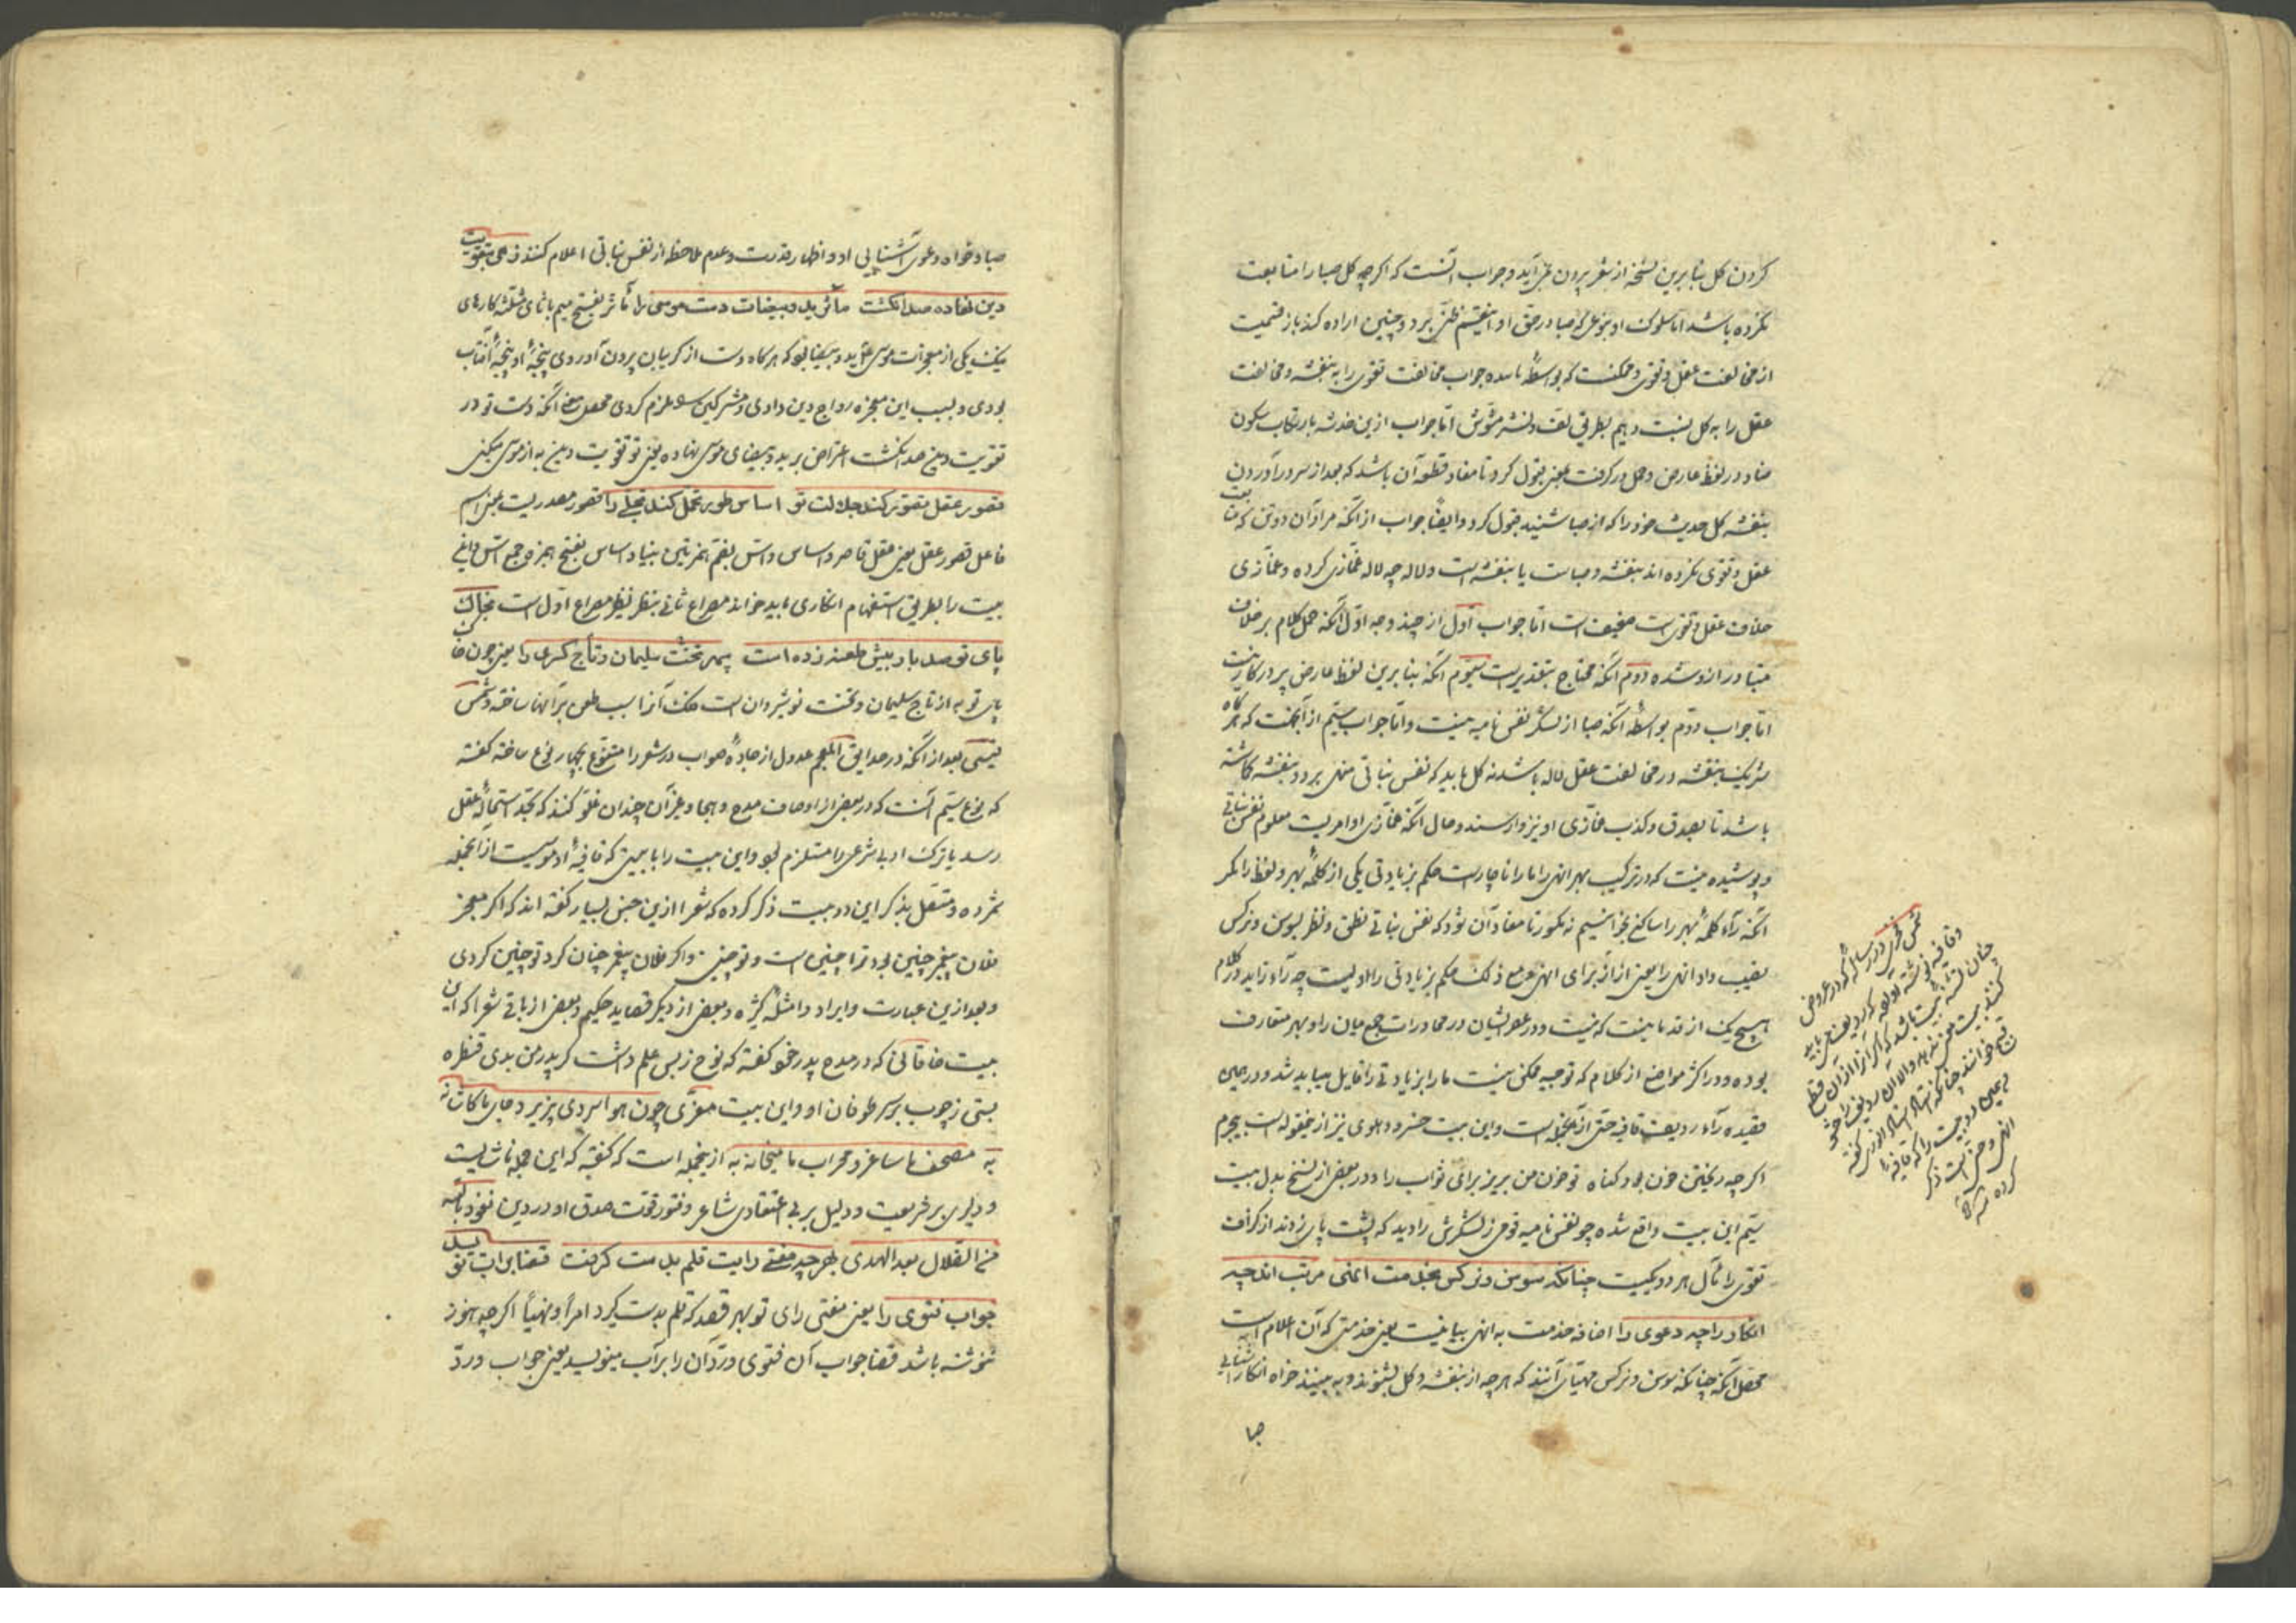 کردن کل بنا برین نسخه از شعر بیرون نمی‌آید و جواب آنست که اکرچه کل صبا را متابعت
نکرده باشد اما سلوک او بنوعی که صبا در حق او اینقسم ظنی برد و چنین اراده کند باز قسمیست
از مخالفت عقل و تقوی و ممکنست که بواسطهٔ جواب مخالفت تقوی را به بنفشه و مخالفت
عقل را به کل نسبت دهیم بطریق لف و نشر مشوش اما جواب ازین خدشه بارتکاب سکون
ضاد در لفظ عارض و حمل در کرفت بمعنی قبول کرد تا مفاد قطعه آن باشد که بعد از سر درآوردن
بنفشه کل حدیث خود را که از صبا شنید قبول کرد و ایضا جواب از آنکه مراد آن دو تن که متابعت
عقل و تقوی نکرده اند بنفشه و صباست یا بنفشه است و لاله چه لاله غمازی کرده و غمازی
خلاف عقل و تقوی است ضعیف است اما جواب اول از چند وجه اول آنکه حمل کلام بر خلاف
متبادر ازو شده دوم آنکه محتاج بتقدیر است سیوم آنکه بنا برین لفظ عارض پر در کار نیست
اما جواب دوم بواسطهٔ آنکه صبا از لشکر نفس نامیه نیست و اما جواب سیم از آنجهت که هرکاه
شریک بنفشه در مخالفت عقل لاله باشد نه کل باید که نفس نباتی منهی بر در بنفشه کماشته
باشد تا بصدق و کذب غمازی او نیز وارسند و حال آنکه غمازی او امریست معلوم نفس نباتی
و پوشیده نیست که در ترکیب بهر انهی را ما را ناچارست حکم بزیادتی یکی از کلمهٔ بهر و لفظ را مکر
آنکه راء کلمهٔ بهر را ساکن بخوانیم نه مکسور تا مفاد آن شود که نفس نباتی نطق و نظر بسوسن و نرکس
نصیب داد انهی را یعنی از برای انهی و مع ذلک حکم بزیادتی را اولیست چه راء زاید در کلام
هیچ یک از قدما نیست که نیست و در عصر ایشان در محاورات جمع میان را و بهر متعارف
بوده و در اکثر مواضع از کلام که توجیه ممکن نیست ما را بزیادتی را قایل میباید شد و در همین
قصیده راء ردیف قافیهٔ حتی ازآنجمله است و این بیت خسرو دهلوی نیز ازین مقوله است بیجرم
اکرچه ریختن خون بود کناه تو خون من بریز برای ثواب را و در بعضی از نسخ بدل بیت
سیم این بیت واقع شده چو نفس نامیه فوجی ز لشکرش را دید که پشت پای زدند از کزافت
تقوی را مآل هر دو یکیست چنانکه سوسن و نرکس بخدمت انهی مرتب اند چه
انکار را چه دعوی را اضافهٔ خدمت به انهی بیانیست یعنی خدمتی که آن اعلام است
محصل آنکه چنانکه سوسن و نرکس مهیای آنند که هرچه از بنفشه و کل بشنوند و به بینند خواه انکار آشنایی
صبا
شمس فخری در رسالهٔ که در عروض
و قافیه نوشته
صبا و خواه دعوی آشنایی او و اظهار قدرت و عدم ملاحظه از نفس نباتی اعلام کنند زهی بتقویت
دین نهاده صد انکشت مآثر ید و بیضات دست موسی را مآثر بفتح میم با ثای مثلثه کارهای
نیک یکی از معجزات موسی علیه ید و بیضا بود که هرکاه دست از کریبان بیرون آوردی پنجهٔ او پنجهٔ آفتاب
بودی و بسبب این معجزه رواج دین دادی و مشرکین را ملزم کردی محصل معنی آنکه دست تو در
تقویت دین صد انکشت اعتراض بر ید و بیضای موسی نهاده یعنی تو تقویت دین به از موسی میکنی
قصور عقل تصور کند جلالت تو اساس طور تحمل کند تجلی را قصور مصدریست بمعنی اسم
فاعل قصور عقل یعنی عقل قاصر و اساس و اسس بضم همزتین بنیاد و اساس بفتح همزه جمع اسس و این
بیت را بطریق استفهام انکاری باید خواند مصراع ثانی بتنظیر مصراع اول است بخاک
پای تو صد بار بیش طعنه زده است سپهر تخت سلیمان و تاج کسری را یعنی چون خاک
پای تو به از تاج سلیمان و تخت نوشیروان است فلک آنرا سبب طعن برآنها ساخته و شمس
قیسی بعد از آنکه در حدایق المعجم عدول از جادهٔ صواب در شعر را متنوع بچهار نوع ساخته کفته
که نوع سیم آنست که در بعضی از اوصاف مدح و هجا و غیر آن چندان غلو کنند که بحد استحالهٔ عقل
رسد یا ترک ادبی شرعی را مستلزم بود و این بیت را با بیتی که قافیهٔ او موسیست ازآنجمله
شمرده و متصل بذکر این دو بیت ذکر کرده که شعرا ازین جنس بسیار کفته اند که اکر معجز
فلان پیغمبر چنین بود ترا چنین است و تو چنینی و اکر فلان پیغمبر چنان کرد تو چنین کردی
و بعد ازین عبارت و ایراد و امثلهٔ کثیره و بعضی از دیکر قصاید حکیم و بعضی از باقی شعرا که این
بیت خاقانی که در مدح پدر خود کفته که نوح ز بس علم داشت کر پدر من بدی قنطره
بستی ز چوب بر سر طوفان او و این بیت معزی چون هوا سردی پذیرد جای ما کاشانه
به مصحف ما ساغر و محراب ما میخانه به ازینجمله است که کفته که این جمله ناشایست
و دلیری بر شریعت و دلیل بر بی اعتقادی شاعر و فتور قوت صدق او در دین نعوذ بالله
من الضلال بعد الهدی بهرچه مفتی رایت قلم بدست کرفت قضا برات نویسد
جواب فتوی را یعنی مفتی رای تو بهر قصد که قلم بدست کیرد امرا و نهیا اکرچه هنوز
ننوشته باشد قضا جواب آن فتوی و رد آن را برآب مینویسد یعنی جواب و رد